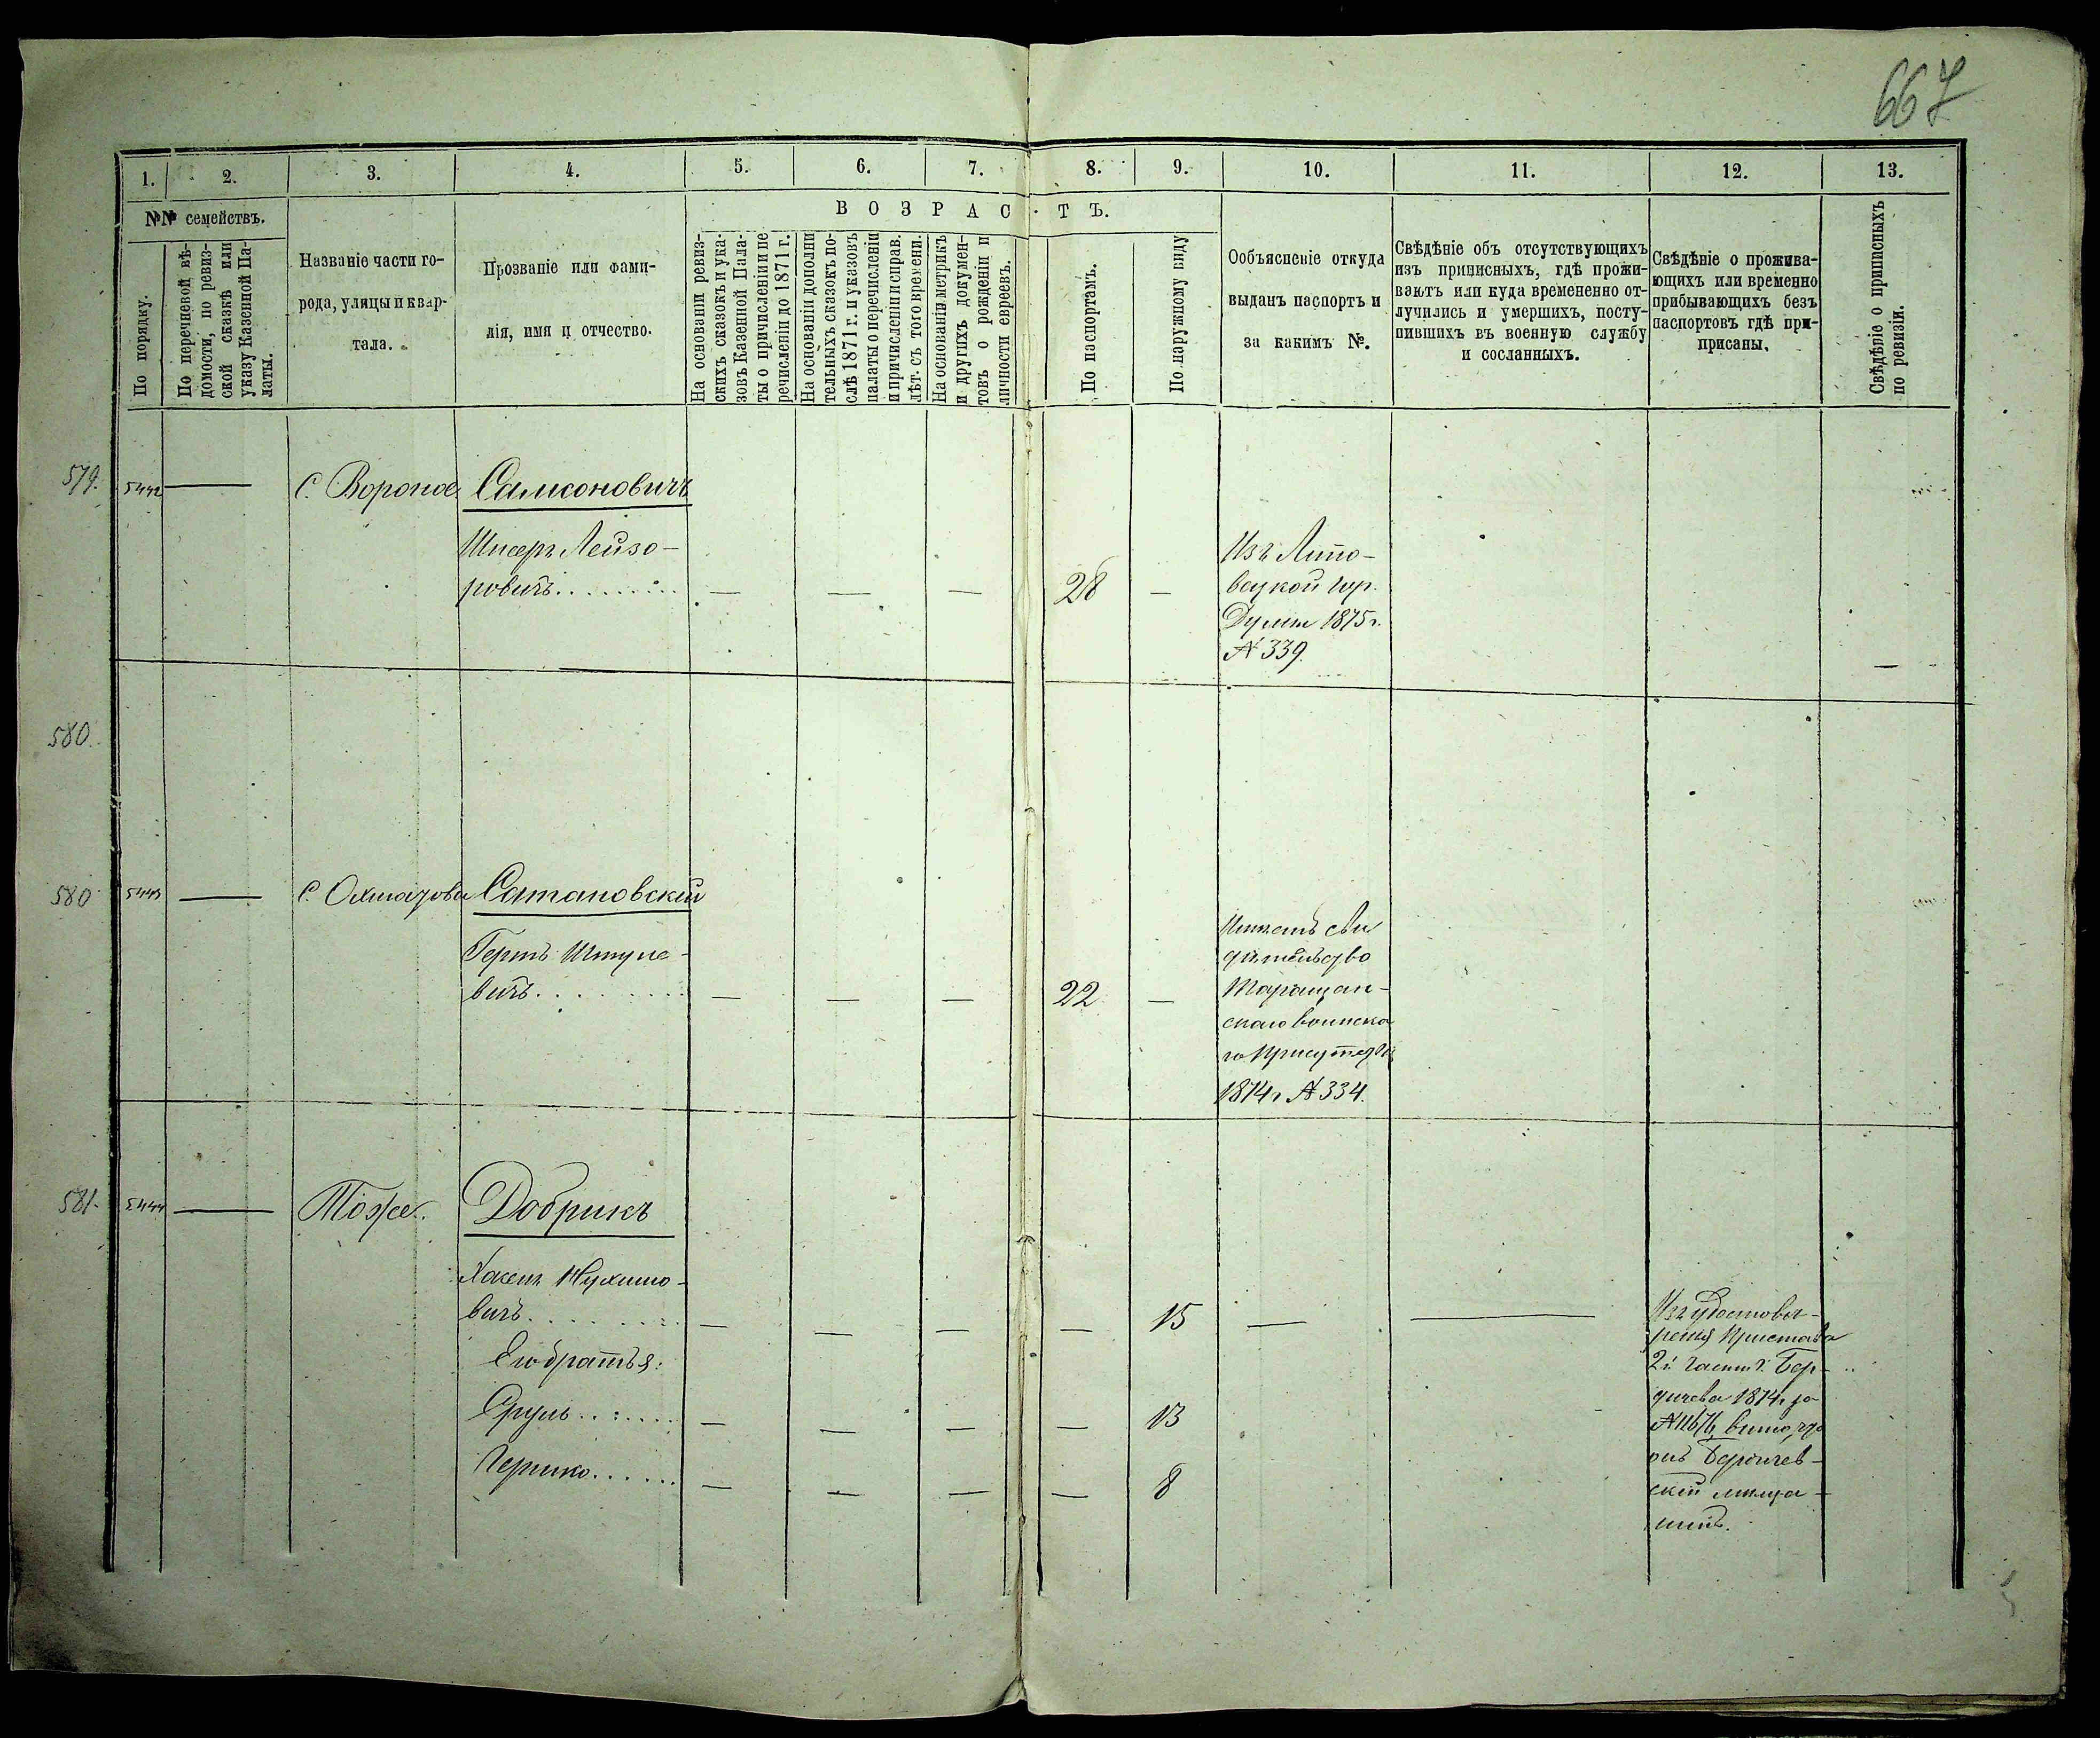 667
1. 2. 3. 4. 5. 6. 7. 8. 9. 10. 11. 12. 13.
№№ семействъ.
По порядку.
По перечневой вѣ-
домости, по ревиз-
ской сказкѣ или
указу Казенной Па-
латы.
Названіе части го-
рода, улицы и квар-
тала.
Прозваніе или фами-
лія, имя и отчество.
ВОЗРАСТЪ.
На основаніи ревиз-
скихъ сказокъ и ука-
зовъ Казенной Пала-
ты о причисленіи и пе
речисленіи до 1871 г.
На основаніи дополни
тельныхъ сказокъ по-
слѣ 1871 г. и указовъ
палаты о перечисленіи
и причисленіи и справ.
лѣт. съ того времени.
На основаніи метрикъ
и другихъ докумен-
товъ о рожденіи и
личности евреевъ.
По паспортамъ.
По наружному виду
Ообъясненіе откуда
выданъ паспортъ и
за какимъ №.
Свѣдѣніе объ отсутствующихъ
изъ приписныхъ, гдѣ прожи-
ваютъ или куда временено от-
лучились и умершихъ, посту-
пившихъ въ военную службу
и сосланныхъ.
Свѣдѣніе о прожива-
ющихъ или временно
прибывающихъ безъ
паспортовъ гдѣ при-
присаны.
Свѣдѣніе о приписныхъ
по ревизіи.
579. 5442 — С. Вороное Самсоновичъ
Шмеръ Лейзо-
ровичъ — — — 28 —
Изъ Липо-
вецкой гор.
Думы 1875 г.
№ 339.
580.
580 5443 — С. Охматова Сатановскій
Гершъ Шмуле-
вичъ — — — 22 —
Имѣетъ сви
дѣтельство
Таращан-
скаго воинска
го Присутствія
1874 г. № 334.
581. 5444 — Тоже. Добрикъ
Нухимо-
вичъ — — — — 15 — —
Его братья:
Сруль — — — — 13
— — — — 8
Изъ удостовѣ-
ренія Пристава
2й части г. Бер-
дичева 1874 г. за
№ видно, что
онъ Бердичев-
скій мѣща-
нинъ.